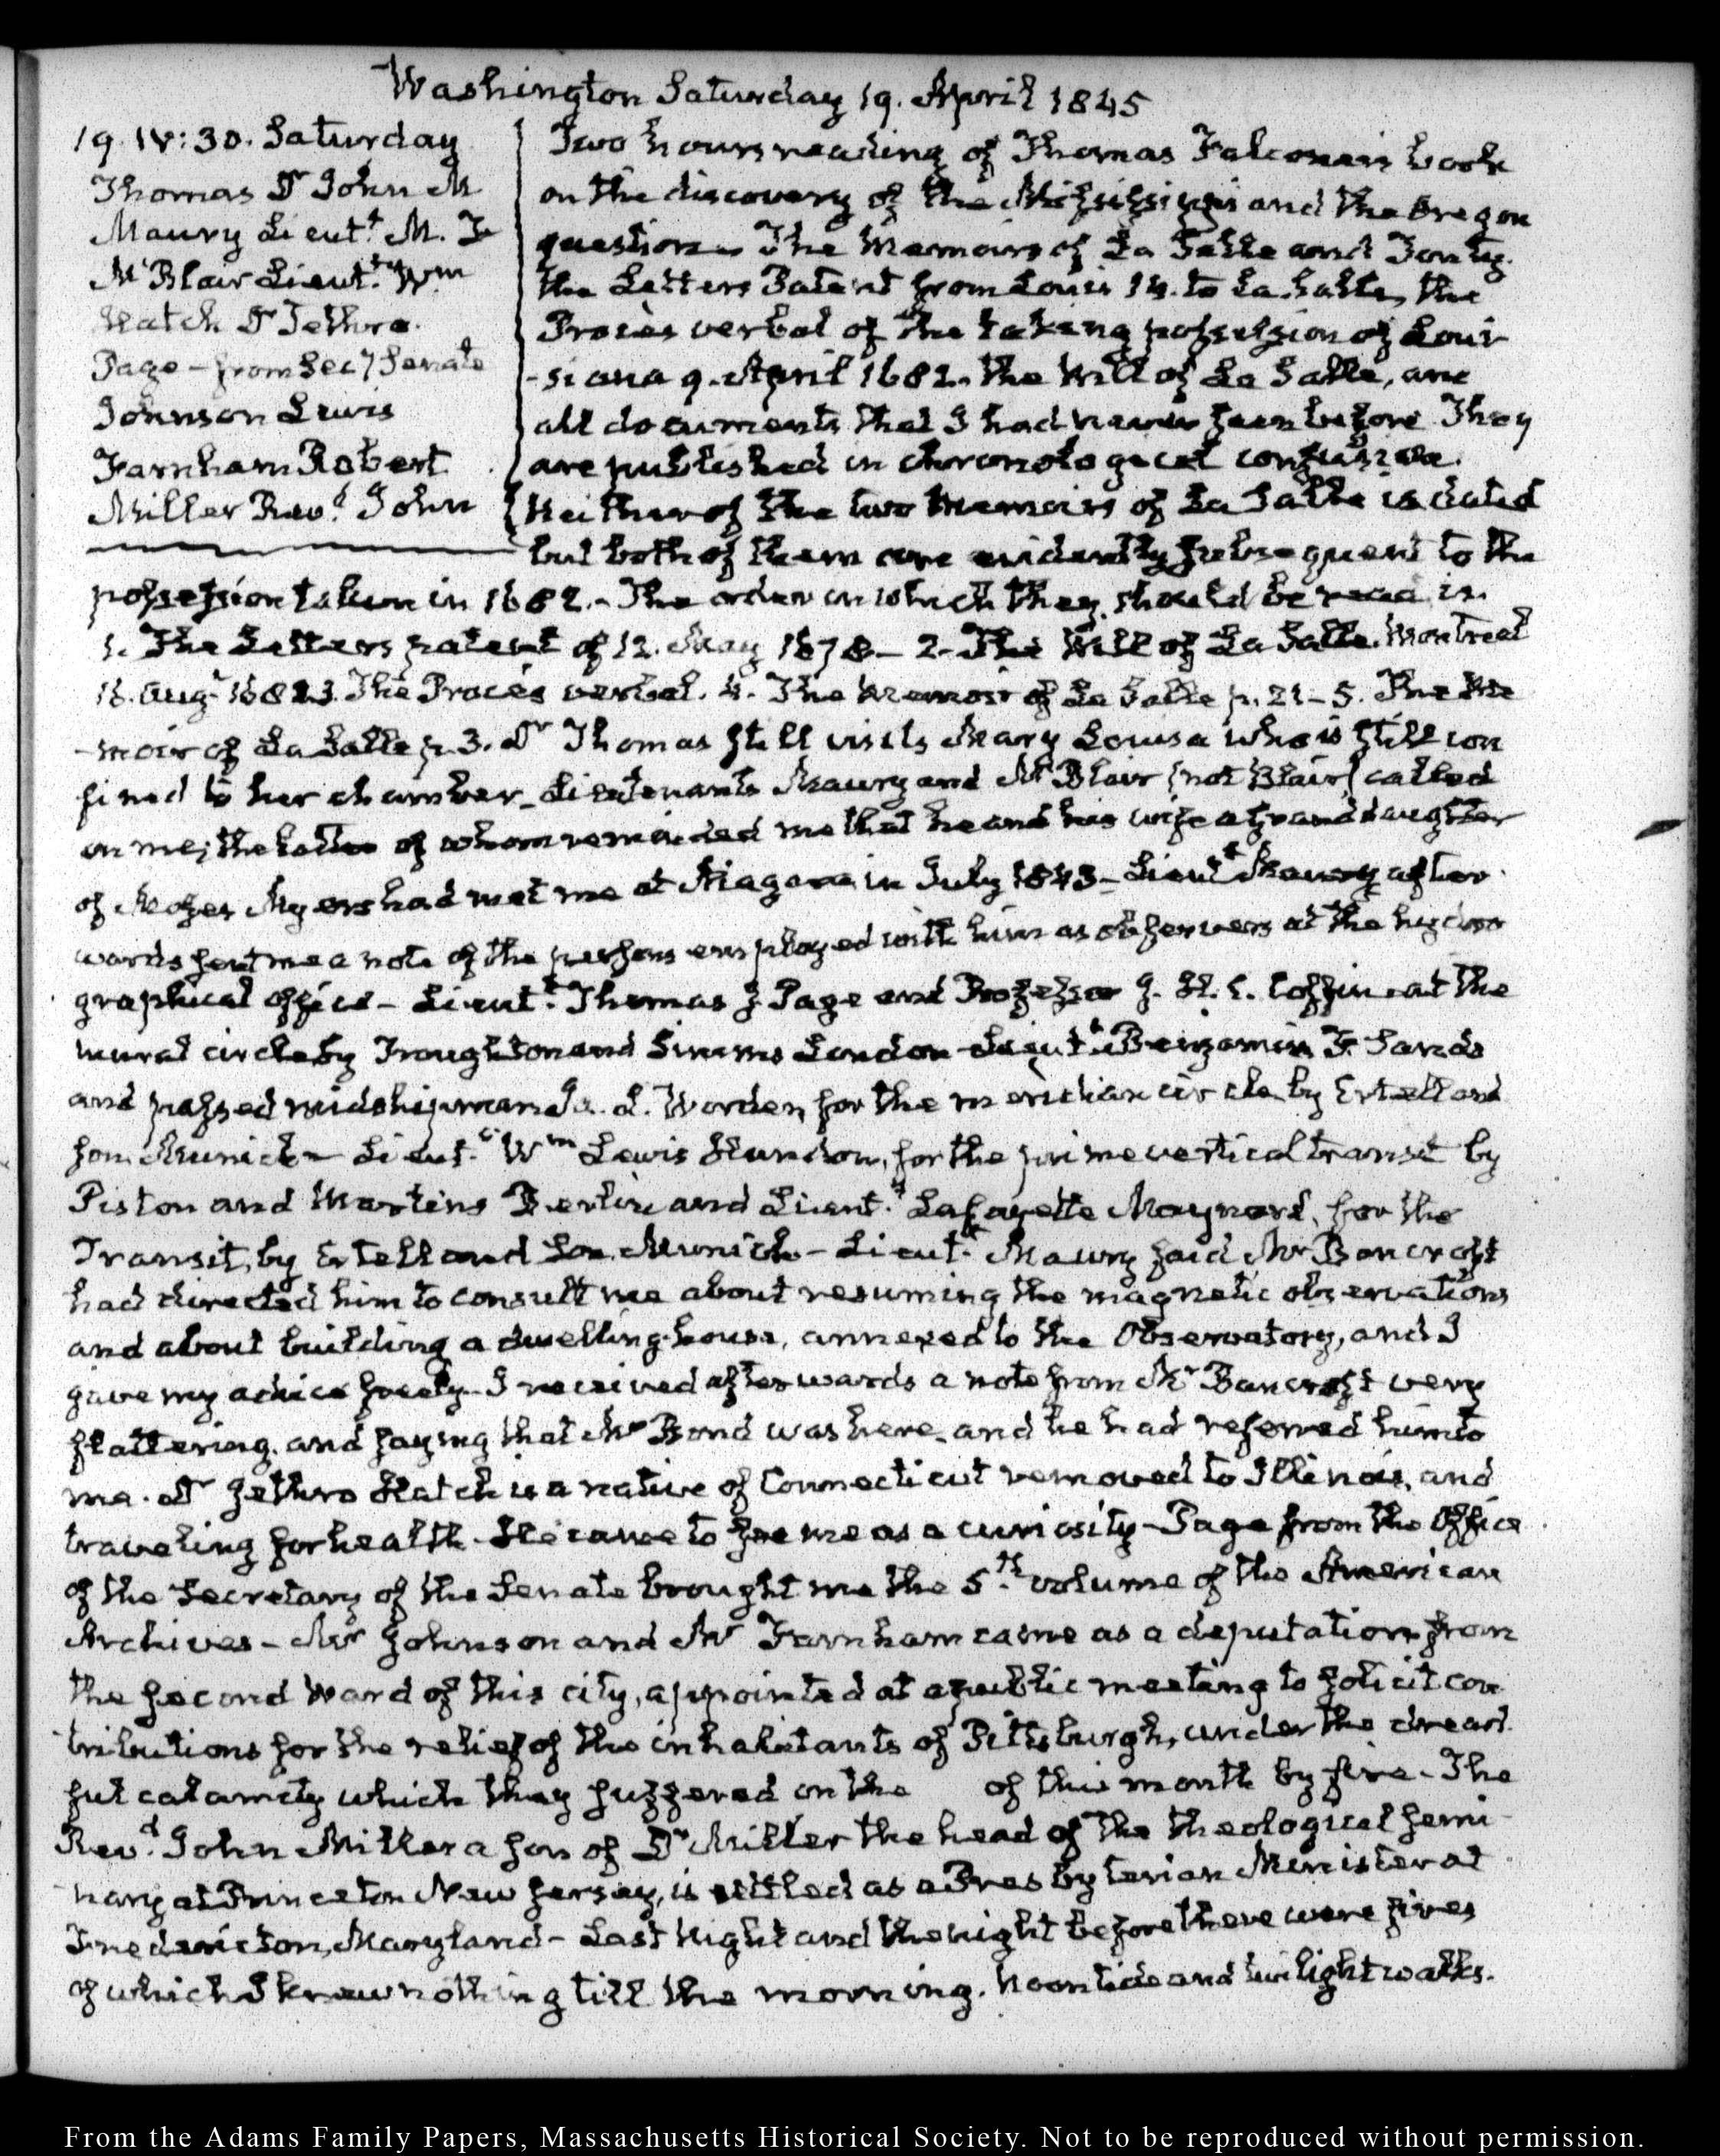 Washington Saturday 19. April 1845
19. IV:30. Saturday
Thomas Dr John M
Maury Lieutt. M. F
McBlair Lieutt. Wm
Hatch Dr Jethro.
Page – from Secy Senate
Johnson Lewis
Farnham Robert
Miller Revd. John
Two hours reading of Thomas Falconer's book
on the discovery of the Mississippi and the Oregon
question. The Memoirs of La Salle and Tonty.
the Letters Patent from Louis 14. to La Salle, the
Proces verbal of the taking possession of Loui-
-siana 9. April 1682. the Will of La Salle, are
all documents that I had never seen before. They
are published in chronological confusion.
Neither of the two Memoirs of La Salle is dated
but both of them are evidently subsequent to the
possession taken in 1682.– The order in which they should be read is.
1. The Letters patent of 12. May 1678– 2– The Will of La Salle. Montreal
11. Augt 1681 3. The Procés verbal. 4. The Memoir of La Salle p. 21– 5. The Me
-moir of La Salle p. 3. Dr Thomas still visits Mary Louisa who is still con
fined to her chamber– Lieutenants Maury and McBlair (not Blair) called
on me; the latter of whom reminded me that he and his wife a granddaughter
of Moses Myers had met me at Niagara in July 1843– Lieutt Maury after
wards sent me a note of the persons employed with him as observers at the hydro
graphical office– Lieutt. Thomas J Page and Professor J. H. C. Coffin at the
mural circle by Troughton and Simms London– Lieutt. Benjamin F. Sands
and passed midshipman J. L. Worden, for the meridian circle by Ertell and
son Munich– Lieut. Wm Lewis Herndon, for the prime vertical transit by
Pistor and Martins Berlin and Lieut. Lafayette Maynard, for the
Transit, by Ertell and Son Munich– Lieutt. Maury said Mr Bancroft
had directed him to consult me about resuming the magnetic observations
and about building a dwelling-house, annexed to the Observatory, and I
gave my advice freely– I received afterwards a note from Mr Bancroft very
flattering, and saying that Mr Bond was here, and he had referred him to
me. Dr Jethro Hatch is a native of Connecticut removed to Illinois, and
traveling for health. He came to see me as a curiosity– Page from the Office
of the Secretary of the Senate brought me the 5th. volume of the American
Archives– Mr Johnson and Mr Farnham came as a deputation from
the second Ward of this city, appointed at a public meeting to solicit con
tributions for the relief of the inhabitants of Pittsburgh, under the dread
ful calamity which they suffered on the of this month by fire– The
Revd. John Miller a son of Dr Miller the head of the theological semi
nary at Princeton New Jersey, is settled as a Presbyterian Minister at
Fredericton, Maryland– Last Night and the night before there were fires
of which I knew nothing till the morning. Noontide and twilight walks.
From the Adams Family Papers, Massachusetts Historical Society. Not to be reproduced without permission.